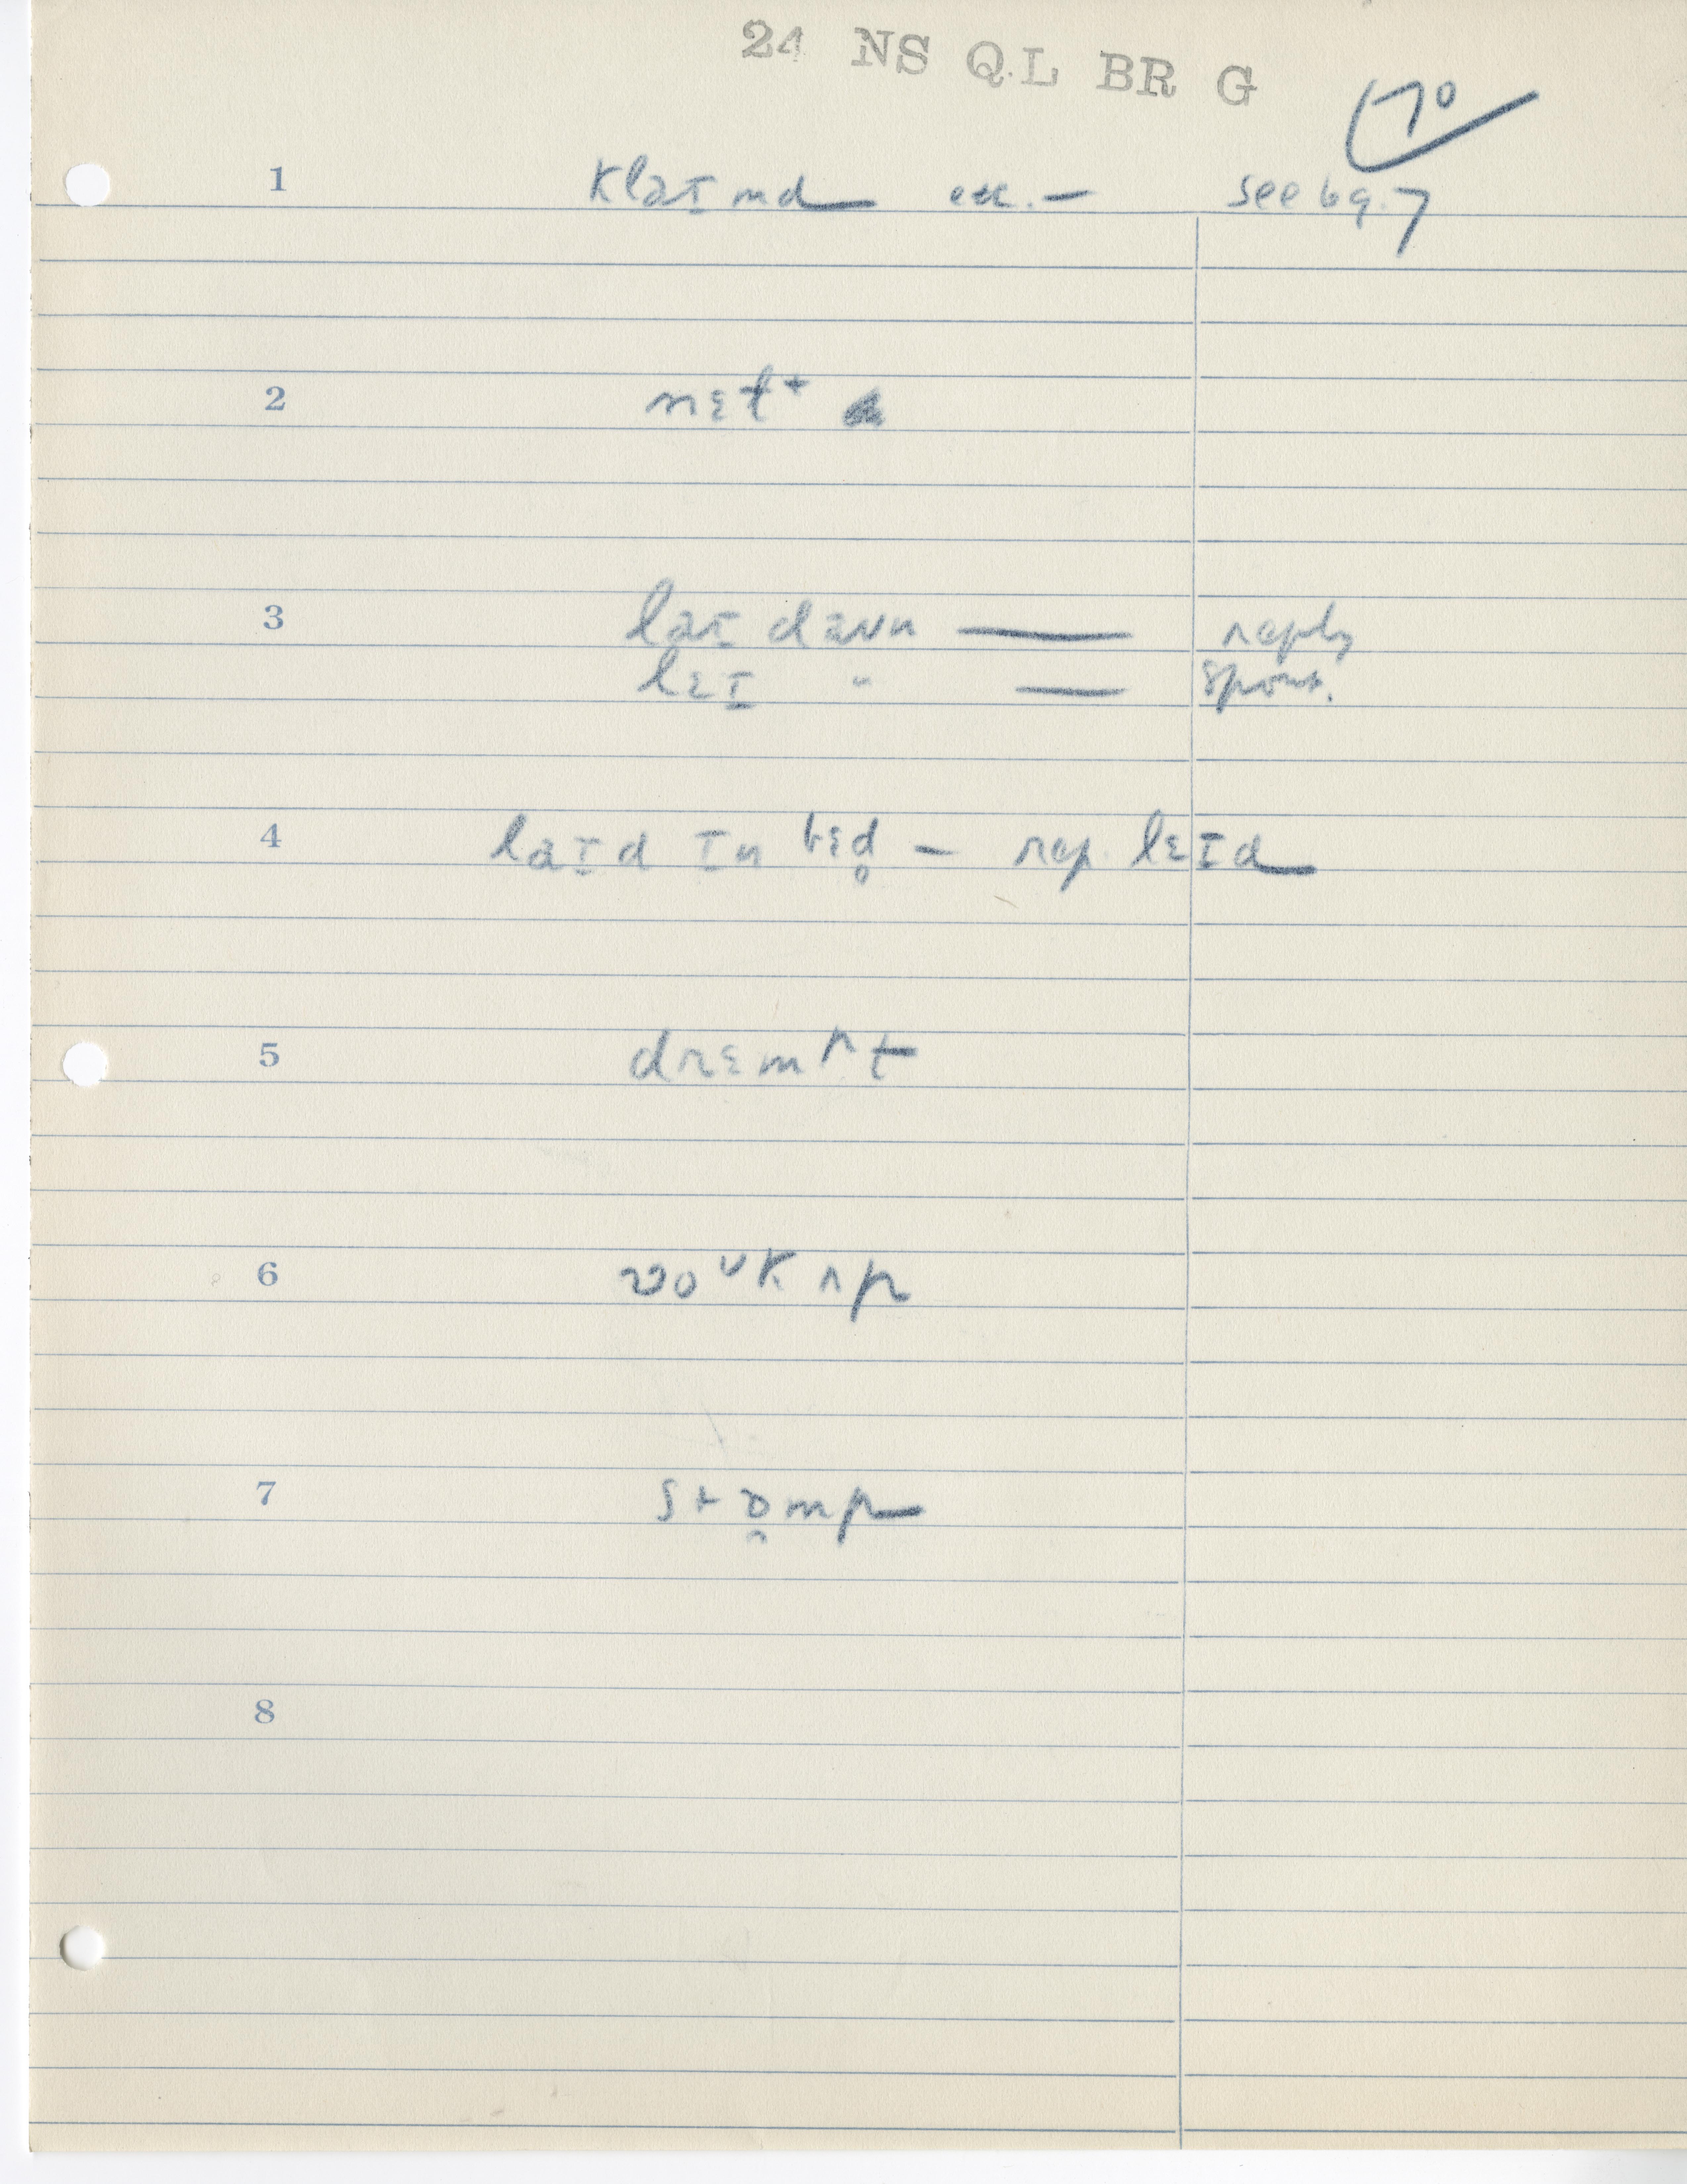 24 NS QL BR G
70
1 klaɪmd etc. — see 69.7
2 nɛlt
3 laɪ daʊn — reply
lɛɪ " — spont.
4 laɪd ɪn bɛd̥ — rep. lɛɪd
5 drɛmᵖt
6 woᵘk ʌp
7 stɒmp
8